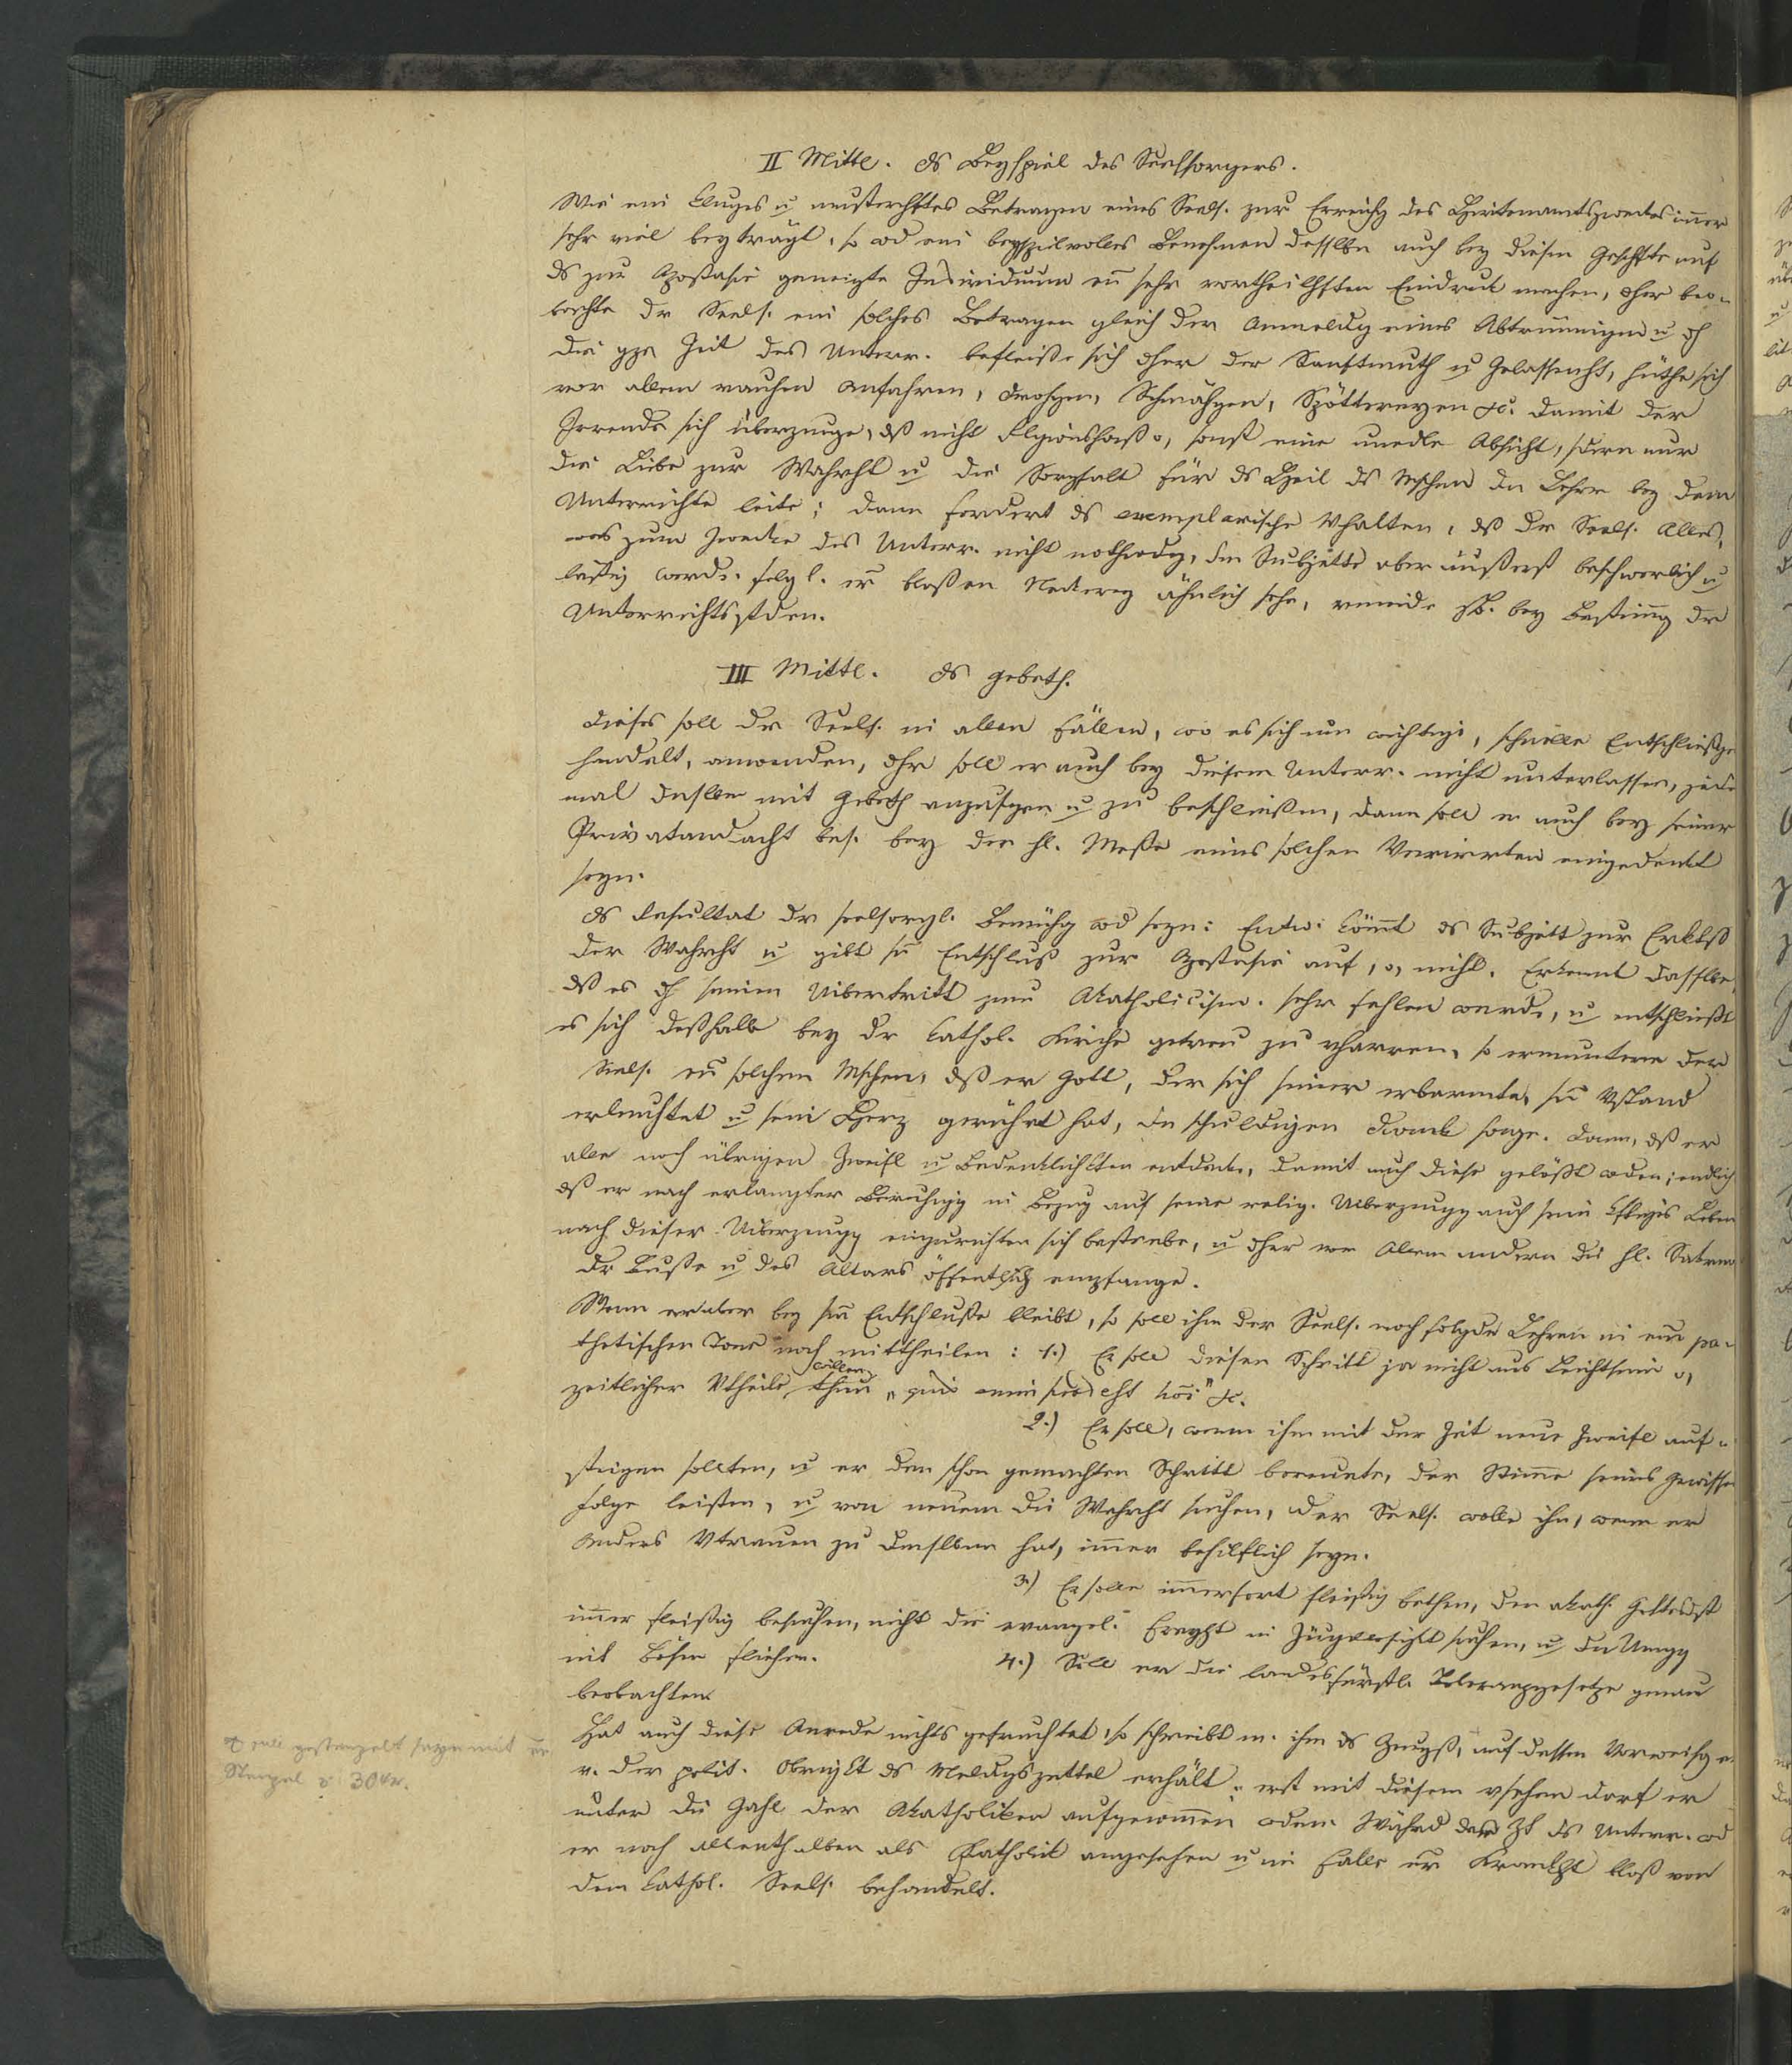 II Mittl. ds Beyspiel des Seelsorgers.
Wie ein kluges u musterhftes Betragen eines Seels. zur Erreichg des Hirtenamtszweckes imer
sehr viel beyträgt, so wd ein beyspielvolles Benehmen desslbn auch bey diesem Geschfte auf
ds zur Apostasie geneigte Individuum ein sehr vortheilhften Eindruck machen, dher beo-
bachte dr Seels. ein solches Betragen gleich der Anmeldg eines Abtrünnigen u dh
die gze Zeit des Unterr. befleisse sich dher der Sanftmuth u Gelassenht, hüthe sich
vor allem rauhen Anfahren, Drohgen, Schmähgen, Spöttereyen &c. damit der
Irrende sich überzeuge, dß nicht Rlgionshaß o, sonst eine unedle Absicht, sdern nur
die Liebe zur Wahrht u die Sorgfalt für ds Heil ds Mschen dn Lehrer bey dem
Unterrichte leite; dann fordert ds exemplarische Vhalten, dß dr Seels. Alles,
was zum Zwecke des Unterr. nicht nothwdg, dm Subjekte aber äußerst beschwerlich u
lästig werde, folgl. er bloßen Neckerey ähnlich sehe, vmeide zB. bey Bestimg dr
Unterrichtsstden.
III Mittl. ds Gebeth.
Dieses soll dr Seels. in allen Fällen, wo es sich um wichtige, schnelle Entschließge
handelt, anwenden, dhr soll er auch bey diesem Unterr. nicht unterlassen, jedes
mal dnslbn mit Gebeth anzufgen u zu beschließen, dann soll er auch bey seiner
Privatandacht bes. bey der hl. Messe eines solchen Verirrten eingedenkt
seyn.
ds Resultat dr seelsorgl. Bemühg wd seyn: Entw. kömt ds Subjekt zur Erktß
der Wahrht u gibt sn Entschluß zur Apostasie auf, o, nicht. Erkennt dasslbe,
dß es dh seinen Uibertritt zum Akatholicism. sehr fehlen werde, u entschließt
es sich deßhalb bey dr kathol. Kirche getreu zu vharren, so ermuntere der
Seels. ein solchen Mschen, dß er Gott, der sich seiner erbarmte, sn Vstand
erleuchtet u sein Herz gerührt hat, dn schuldigen Dank sage. dann, dß er
alle noch übrigen Zweifl u Bedenklichktn entdecke, damit auch diese gelößt wden; endlich
dß er nach erlangter Beruhigg in Bezug auf seine relig. Uiberzeugg auch sein Leben
nach dieser Uiberzeugg einzurichten sich bestrebe, u dher vor Allem andern die hl. Sakram
dr Buße u des Altars öffentlich empfange.
Wenn er aber bey sm Entschluße bleibt, so soll ihm der Seels. noch folgde Lehren in em pa-
thetischen Tone noch mittheilen: 1.) Er soll diesen Schritt ja nicht aus Leichtsinn o,
zeitlicher Vtheile willen thun
2.) Er soll, wenn ihm mit der Zeit neue Zweifl auf-
steigen sollten, u er den schon gemachten Schritt bereuete, der Stime seines Gewissen
Folge leisten, u von neuem die Wahrht suchen, der Seels. wolle ihm, wenn er
anders Vtrauen zu demslben hat, imer behilflich seyn.
3.) Er solle imerfort fleißig bethen, den akath. Gottesdst
imer fleißig besuchen, nicht die evangel. Freyht in suchen, u dn Umgg
mit Bösen fliehen. 4.) Soll er die landesfürstl. Toleranzgesetze genau
beobachten.
Hat auch diese Anrede nichts gefruchtet, so schreibt m. ihm ds Zeugß, auf dessen Vorweisg e
v. der polit. Obrigkt ds Meldgszettel erhält, erst mit diesem vsehen darf er
unter die Zahl der Akatholiken aufgenomen wden. Währd der Zt ds Unterr. wd
er noch allenthalben als Katholik angesehen u im Falle er Krankht bloß von
dem kathol. Seels. behandelt.
soll gestempelt seyn mit
Stempel v. 30 kr.